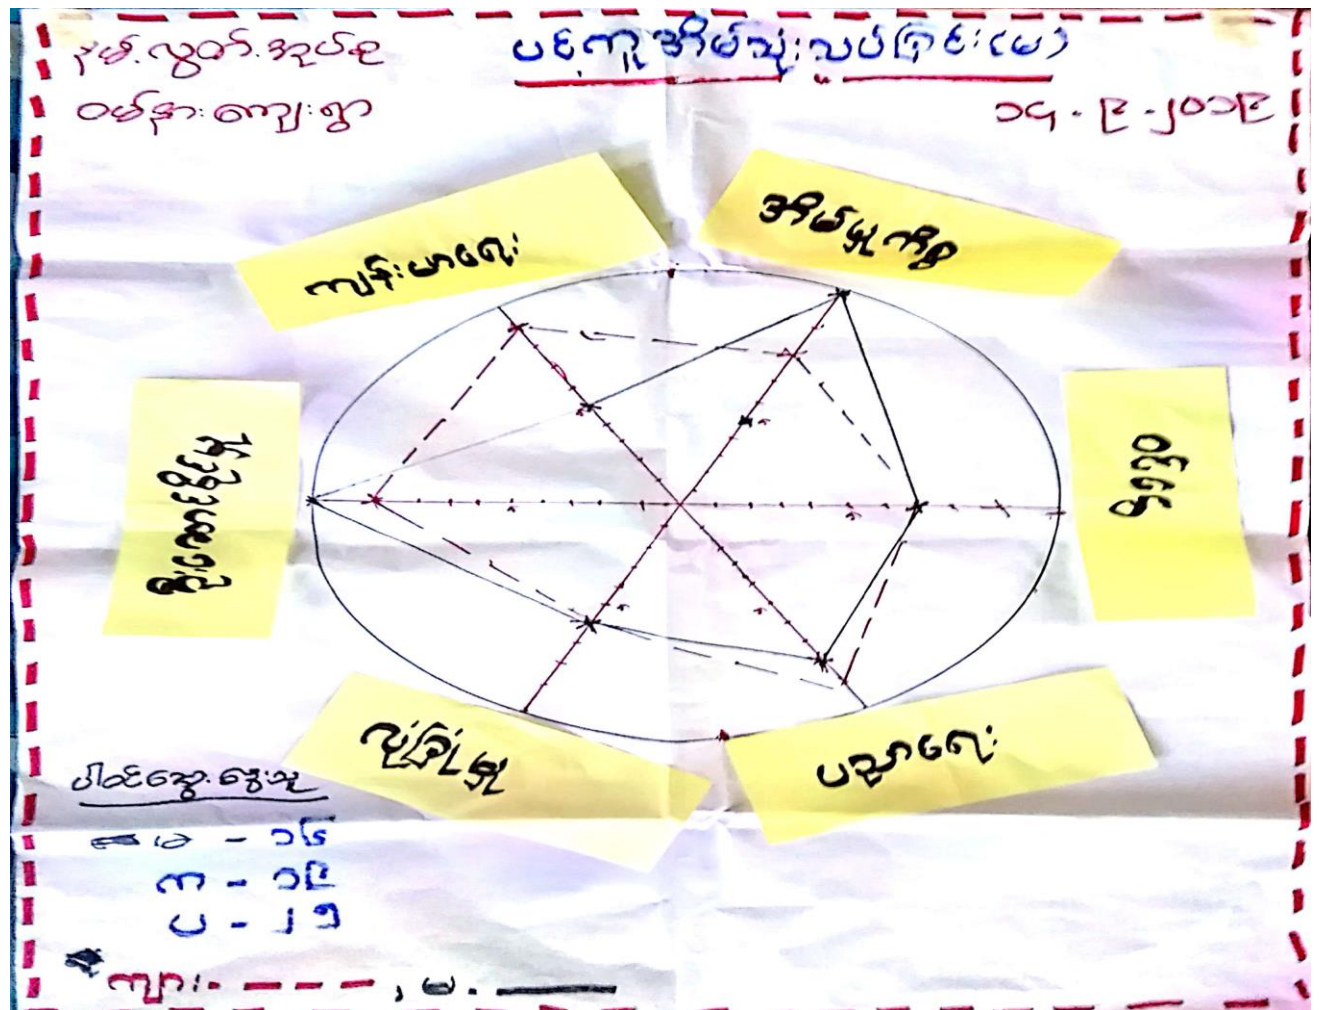 နမ့်လွတ်အုပ်စု
ဝမ်နားကျေးရွာ
ပင့်ကူအိမ်သုံးသပ်ခြင်း(မ)
၁၄-၉-၂၀၁၉
ကျန်းမာရေး
အိမ်မှုကိစ္စ
စီးပွါး
ပညာရေး
လုံခြုံမှု
ဦးဆောင်နိုင်မှု
ပါဝင်ဆွေးနွေးသူ
မ - ၁၆
က - ၁၉
ပ - ၂၅
ကျား - - - - , မ -